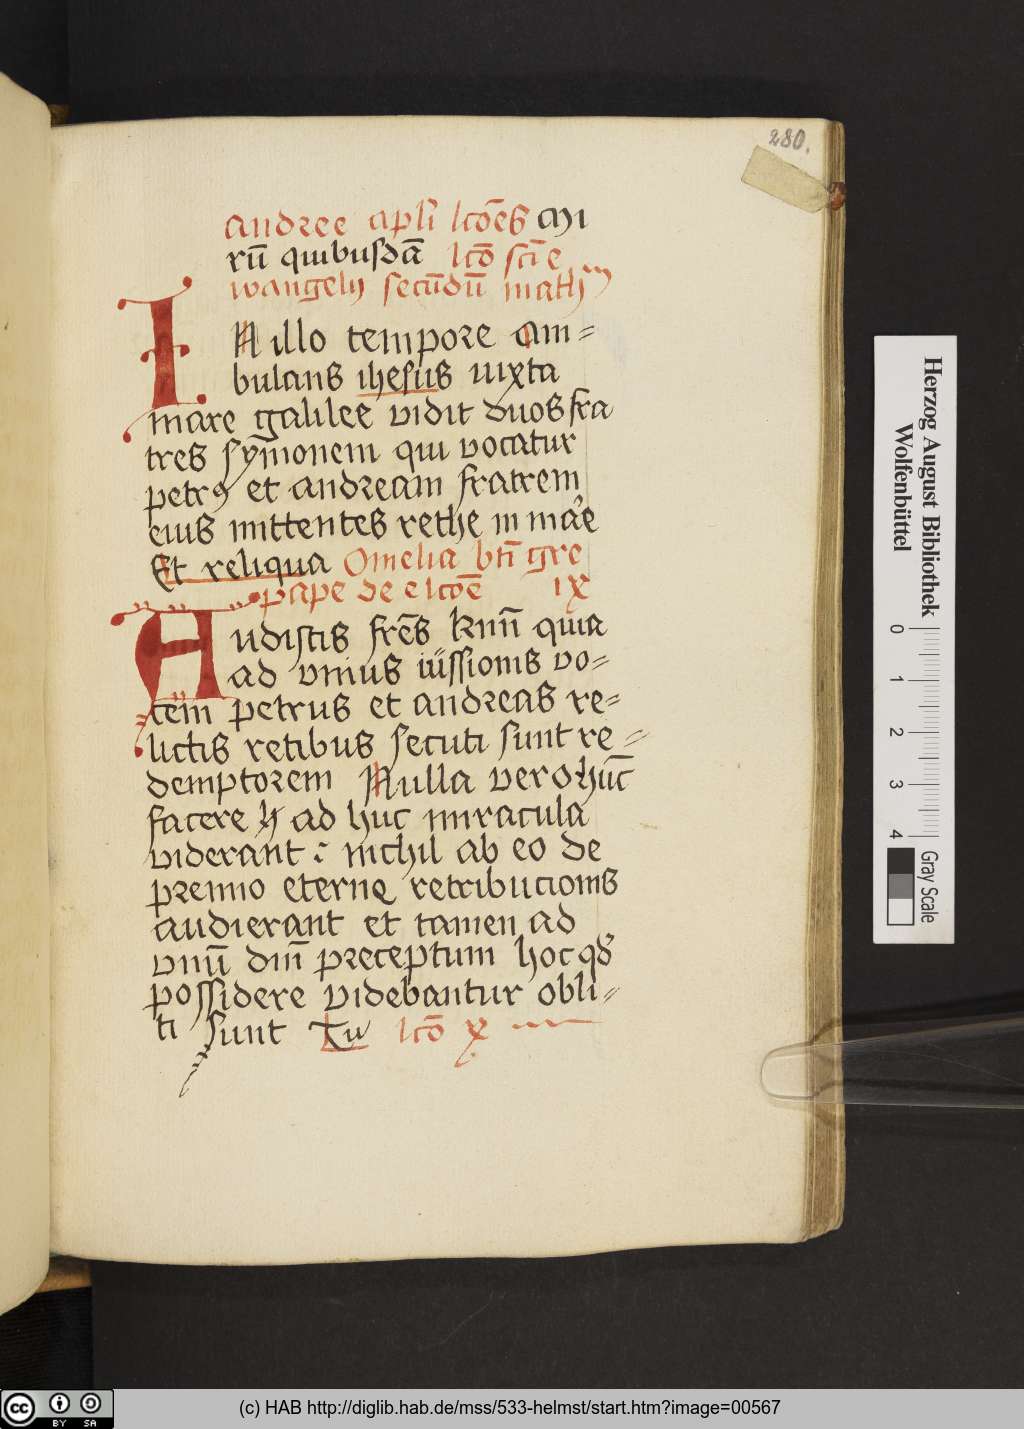 280.
andree apl̄i lcōes Mi
rū quibusdā lcō sc̄i e
wangelij secūdū math
IN illo tempore am=
bulans ihesus iuxta
mare galilee vidit duos fra
tres sȳmonem qui vocatur
petrꝰ et andream fratrem
eius mittentes rethe in mare
Et reliqua Omelia bt̄i gre
pape de e lcōe ix
Audistis fr̄es kmī quia
ad vnius iussionis vo=
cem petrus et andreas re=
lictis retibus secuti sunt re=
demptorem Nulla vero hūc
facere ad huc miracula
viderant : nichil ab eo de
premio eterne retribucionis
audierant et tamen ad
vnū dnī preceptum hoc qd
possidere videbantur obli=
ti sunt Tu lcō x
Herzog August Bibliothek
Wolfenbüttel
0 1 2 3 4
Gray Scale
(c) HAB http://diglib.hab.de/mss/533-helmst/start.htm?image=00567
cc BY SA